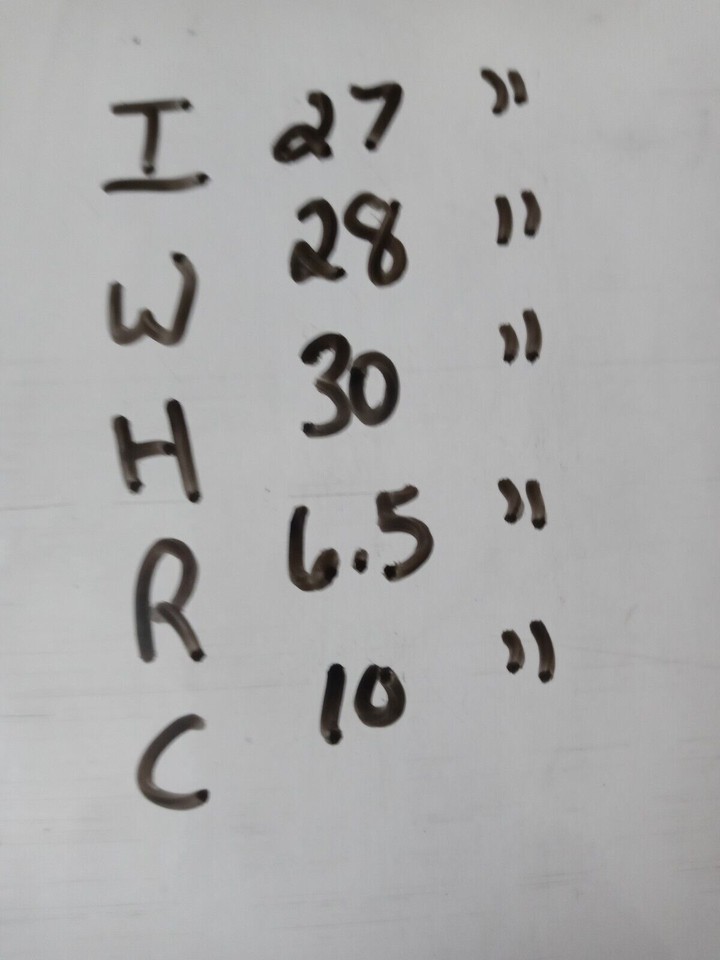 I 27 "
W 28 "
H 30 "
R 6.5 "
C 10 "